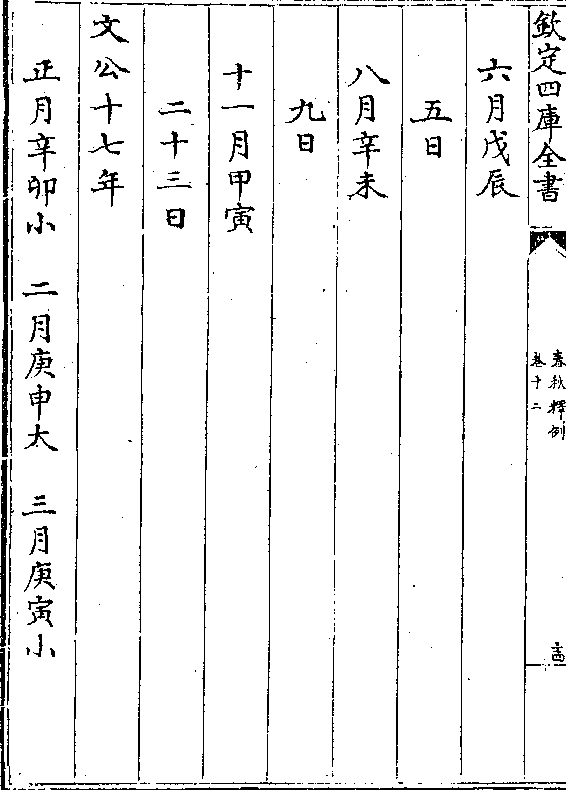 欽定四庫全書
春秋釋例
卷十二
六月戊辰
五日
八月辛未
九日
十一月甲寅
二十三日
文公十七年
正月辛卯小　二月庚申大　三月庚寅小